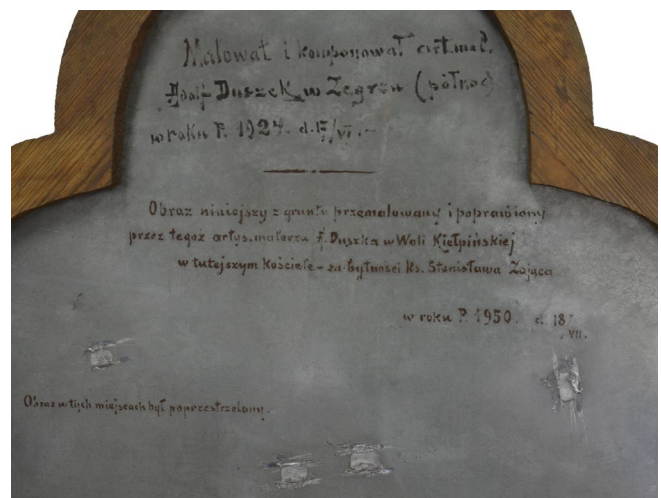 Malował i komponował art. mal.
Adolf Duszek w Zegrzu (północ)
w roku P. 1924. d. 15/VI. –
Obraz niniejszy z gruntu przemalowany i poprawiony
przez tegoż artys. malarza A. Duszka w Woli Kiełpińskiej
w tutejszym Kościele – za bytności Ks. Stanisława Zająca
w roku P. 1950. d. 18/VII.
Obraz w tych miejscach był poprzestrzelany.